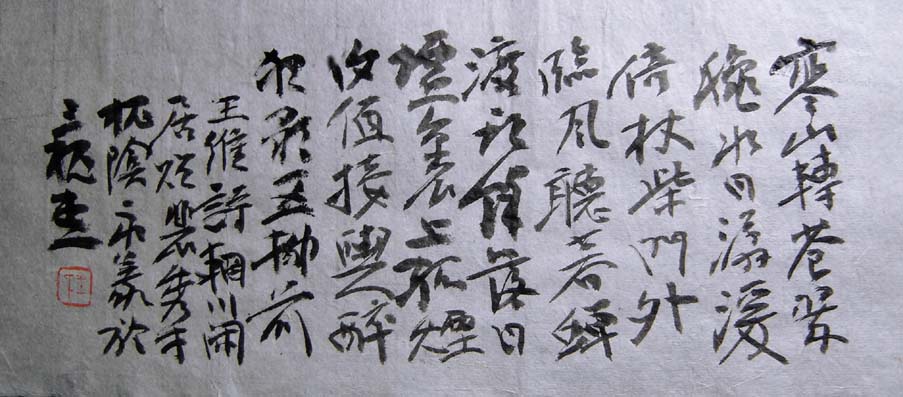 寒山轉蒼翠
秋水日潺湲
倚杖柴門外
臨風聽暮蟬
渡頭餘落日
墟里上孤煙
復值接輿醉
狂歌五柳前
王維詩輞川閒
居贈裴秀才